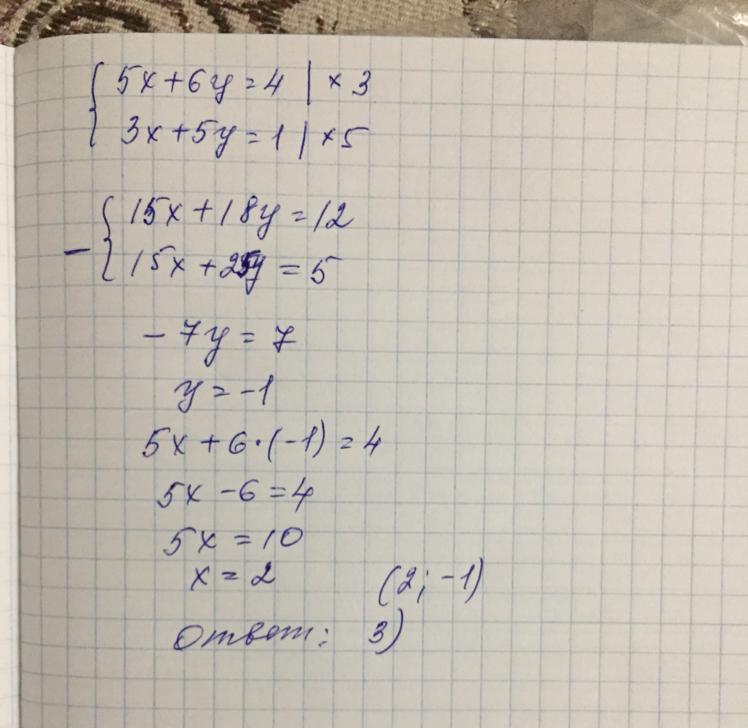 5x+6y=4 | ×3
3x+5y=1 | ×5
15x+18y=12
- 15x+25y=5
-7y=7
y=-1
5x+6·(-1)=4
5x-6=4
5x=10
x=2 (2; -1)
Ответ: 3)